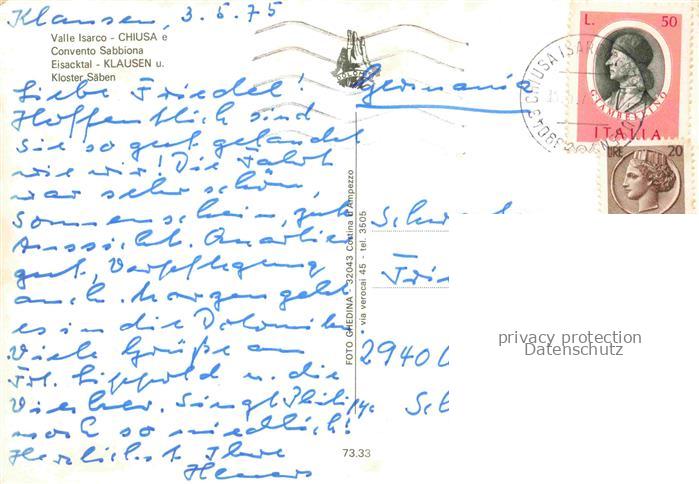 Klausen, 3.5.75
Valle Isarco - CHIUSA e
Convento Sabbiona
Eisacktal - KLAUSEN u.
Kloster Säben
Liebe Friedel!
Hoffentlich sind
Sie so gut gelandet
wie wir! Die Fahrt
war sehr schön,
Sonnenschein, gute
Aussicht. Quartier
gut, Verpflegung
auch. Morgen geht
es in die Dolomiten.
Viele Grüße an
Frl. Lippold u. die
noch so niedlich!
Herzlichst Ihre
Germania
Frie
2940
FOTO GHEDINA - 32043 Cortina d'Ampezzo
via verocai 45 - tel. 3505
73.33
L. 50
GIAMBELLINO
ITALIA
LIRE 20
CHIUSA ISAR
39043
privacy protection
Datenschutz